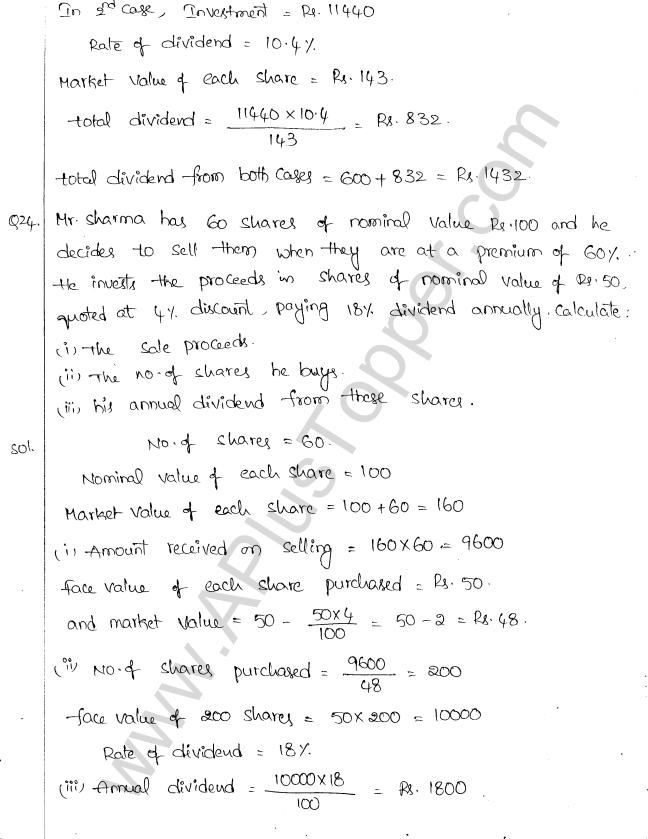 In 2nd case, Investment = Rs. 11440
Rate of dividend = 10.4%
Market value of each share = Rs. 143.
total dividend = 11440 × 10.4 / 143 = Rs. 832.
total dividend from both cases = 600 + 832 = Rs. 1432.
Q24. Mr. Sharma has 60 shares of nominal value Rs. 100 and he
decides to sell them when they are at a premium of 60%.
He invests the proceeds in shares of nominal value of Rs. 50,
quoted at 4% discount, paying 18% dividend annually. Calculate:
(i) The sale proceeds.
(ii) The no. of shares he buys.
(iii) his annual dividend from these shares.
Sol. No. of shares = 60.
Nominal value of each share = 100
Market value of each share = 100 + 60 = 160
(i) Amount received on selling = 160 × 60 = 9600
face value of each share purchased = Rs. 50.
and market value = 50 - 50×4 / 100 = 50 - 2 = Rs. 48.
(ii) No. of shares purchased = 9600 / 48 = 200
face value of 200 shares = 50 × 200 = 10000
Rate of dividend = 18%
(iii) Annual dividend = 10000 × 18 / 100 = Rs. 1800.
www.APlusTopper.com